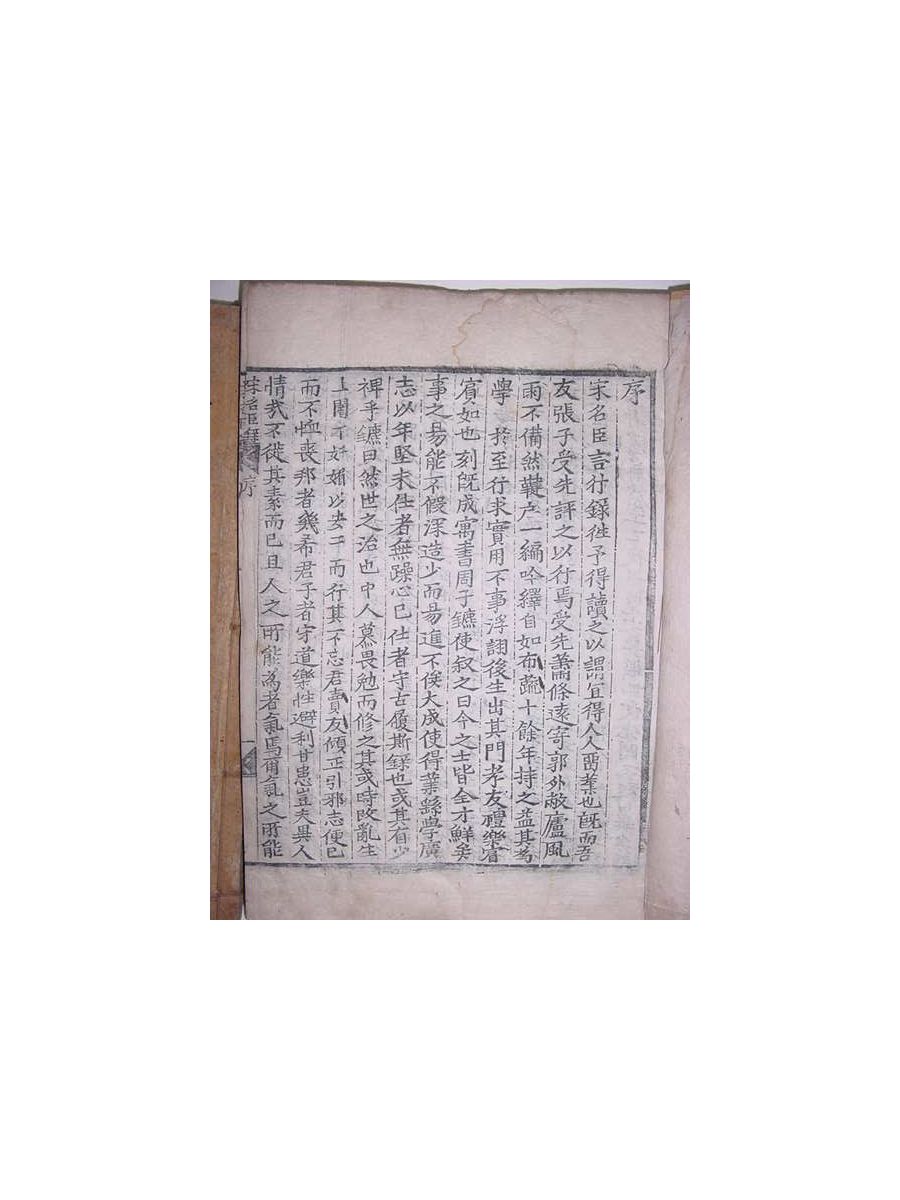 序
宋名臣言行錄徃予得讀之以謂宜得人人啇業也旣而吾
友張子受先評之以行焉受先蕭條遠寄郭外敝廬風
雨不備然鞬戶一編吟繹自如布蔬十餘年持之益其為
學於至行求實用不事浮詡後生出其門孝友禮樂省
賓如也刻旣成寓書周子鑣使叙之曰今之士皆全才鮮矣
事之易能不假深造少而易進不俟大成使得葉縣學廣
志以年堅未仕者無躁心已仕者守古履斯錄也或其有少
裨乎鑣曰然世之治也中人慕畏勉而修之其或時改亂生
上闇下奸婚以安干而行其不忘君賣友傾正引邪志便已
而不恤喪邦者幾希君子者守道樂性避利甘患豈夫異人
情㢤不徙其素而已且人之所能為者氣焉爾氣之所能
宋名臣錄 序 一